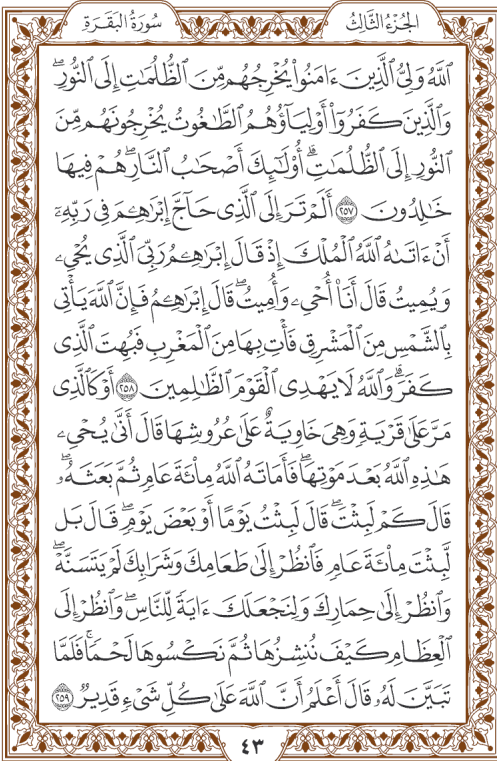 الجزء الثالث
سورة البقرة
ٱللَّهُ وَلِىُّ ٱلَّذِينَ ءَامَنُوا۟ يُخْرِجُهُم مِّنَ ٱلظُّلُمَٰتِ إِلَى ٱلنُّورِۖ
وَٱلَّذِينَ كَفَرُوٓا۟ أَوْلِيَآؤُهُمُ ٱلطَّٰغُوتُ يُخْرِجُونَهُم مِّنَ
ٱلنُّورِ إِلَى ٱلظُّلُمَٰتِۗ أُو۟لَٰٓئِكَ أَصْحَٰبُ ٱلنَّارِۖ هُمْ فِيهَا
خَٰلِدُونَ ٢٥٧ أَلَمْ تَرَ إِلَى ٱلَّذِى حَآجَّ إِبْرَٰهِـۧمَ فِى رَبِّهِۦٓ
أَنْ ءَاتَىٰهُ ٱللَّهُ ٱلْمُلْكَ إِذْ قَالَ إِبْرَٰهِـۧمُ رَبِّىَ ٱلَّذِى يُحْىِۦ
وَيُمِيتُ قَالَ أَنَا۠ أُحْىِۦ وَأُمِيتُۖ قَالَ إِبْرَٰهِـۧمُ فَإِنَّ ٱللَّهَ يَأْتِى
بِٱلشَّمْسِ مِنَ ٱلْمَشْرِقِ فَأْتِ بِهَا مِنَ ٱلْمَغْرِبِ فَبُهِتَ ٱلَّذِى
كَفَرَۗ وَٱللَّهُ لَا يَهْدِى ٱلْقَوْمَ ٱلظَّٰلِمِينَ ٢٥٨ أَوْ كَٱلَّذِى
مَرَّ عَلَىٰ قَرْيَةٍ وَهِىَ خَاوِيَةٌ عَلَىٰ عُرُوشِهَا قَالَ أَنَّىٰ يُحْىِۦ
هَٰذِهِ ٱللَّهُ بَعْدَ مَوْتِهَاۖ فَأَمَاتَهُ ٱللَّهُ مِا۟ئَةَ عَامٍ ثُمَّ بَعَثَهُۥۖ
قَالَ كَمْ لَبِثْتَۖ قَالَ لَبِثْتُ يَوْمًا أَوْ بَعْضَ يَوْمٍۖ قَالَ بَل
لَّبِثْتَ مِا۟ئَةَ عَامٍ فَٱنظُرْ إِلَىٰ طَعَامِكَ وَشَرَابِكَ لَمْ يَتَسَنَّهْۖ
وَٱنظُرْ إِلَىٰ حِمَارِكَ وَلِنَجْعَلَكَ ءَايَةً لِّلنَّاسِۖ وَٱنظُرْ إِلَى
ٱلْعِظَامِ كَيْفَ نُنشِزُهَا ثُمَّ نَكْسُوهَا لَحْمًاۚ فَلَمَّا
تَبَيَّنَ لَهُۥ قَالَ أَعْلَمُ أَنَّ ٱللَّهَ عَلَىٰ كُلِّ شَىْءٍ قَدِيرٌ ٢٥٩
٤٣